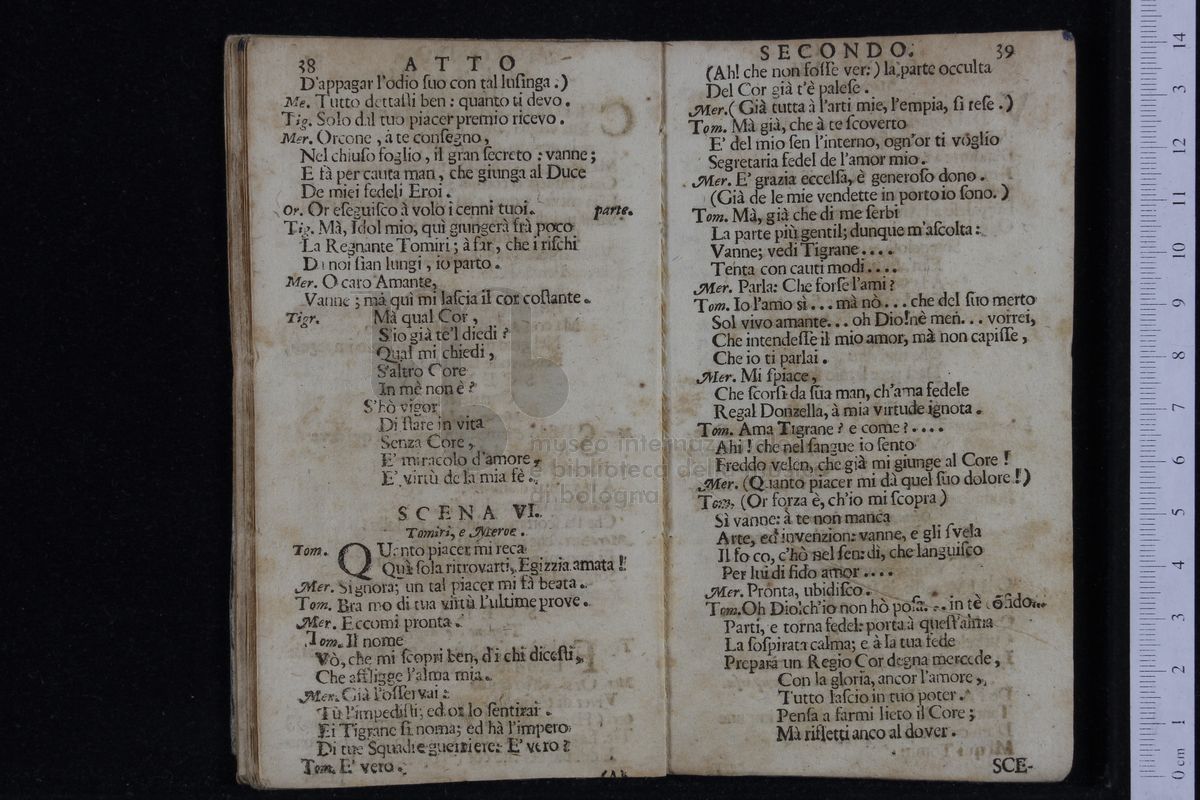 38 ATTO
D'appagar l'odio suo con tal lusinga.)
Me. Tutto dettasti ben: quanto ti devo.
Tig. Solo dal tuo piacer premio ricevo.
Mer. Orcone, à te consegno,
Nel chiuso foglio, il gran secreto: vanne;
E fà per cauta man, che giunga al Duce
De miei fedeli Eroi.
Or. Or eseguisco à volo i cenni tuoi. parte.
Tig. Mà, Idol mio, quì giungerà frà poco
La Regnante Tomiri; à far, che i rischi
Da noi sian lungi, io parto.
Mer. O caro Amante,
Vanne; mà quì mi lascia il cor costante.
Tigr. Mà qual Cor,
S'io già te'l diedi?
Qual mi chiedi,
S'altro Core
In mè non è?
S'hò vigor
Di stare in vita
Senza Core,
E' miracolo d'amore,
E' virtù de la mia fè.
SCENA VI.
Tomiri, e Meroe.
Tom. QUanto piacer mi reca
Quì sola ritrovarti, Egizzia amata!
Mer. Signora; un tal piacer mi fà beata.
Tom. Bramo di tua virtù l'ultime prove.
Mer. Eccomi pronta.
Tom. Il nome
Vò, che mi scopri ben, di chi dicesti,
Che affligge l'alma mia.
Mer. Già l'osservai:
Tù l'impedisti; ed or lo sentirai.
Ei Tigrane si noma; ed hà l'impero
Di tue Squadre guerriere: E' vero?
Tom. E' vero.
(Ah
museo internaz
biblioteca del
di bologna
SECONDO. 39
(Ah! che non fosse ver:) la parte occulta
Del Cor già t'è palese.
Mer. (Già tutta à l'arti mie, l'empia, si rese.)
Tom. Mà già, che à te scoverto
E' del mio sen l'interno, ogn'or ti voglio
Segretaria fedel de l'amor mio.
Mer. E' grazia eccelsa, è generoso dono.
(Già de le mie vendette in porto io sono.)
Tom. Mà, già che di me serbi
La parte più gentil; dunque m'ascolta:
Vanne; vedi Tigrane....
Tenta con cauti modi....
Mer. Parla: Che forse l'ami?
Tom. Io l'amo sì... mà nò... che del suo merto
Sol vivo amante... oh Dio! nè men... vorrei,
Che intendesse il mio amor, mà non capisse,
Che io ti parlai.
Mer. Mi spiace,
Che scorsi da sua man, ch'ama fedele
Regal Donzella, à mia virtude ignota.
Tom. Ama Tigrane? e come?....
Ahi! che nel sangue io sento
Freddo velen, che già mi giunge al Core!
Mer. (Quanto piacer mi dà quel suo dolore!)
Tom. (Or forza è, ch'io mi scopra)
Sì vanne: à te non manca
Arte, ed invenzion: vanne, e gli svela
Il foco, c'hò nel sen: dì, che languisco
Per lui di fido amor....
Mer. Pronta, ubidisco.
Tom. Oh Dio! ch'io non hò posa... in tè cõfido...
Parti, e torna fedel: porta à quest'alma
La sospirata calma; e à la tua fede
Prepara un Regio Cor degna mercede,
Con la gloria, ancor l'amore,
Tutto lascio in tuo poter.
Pensa a farmi lieto il Core;
Mà rifletti anco al dover.
SCE-
0 cm 1 2 3 4 5 6 7 8 9 10 11 12 3 14